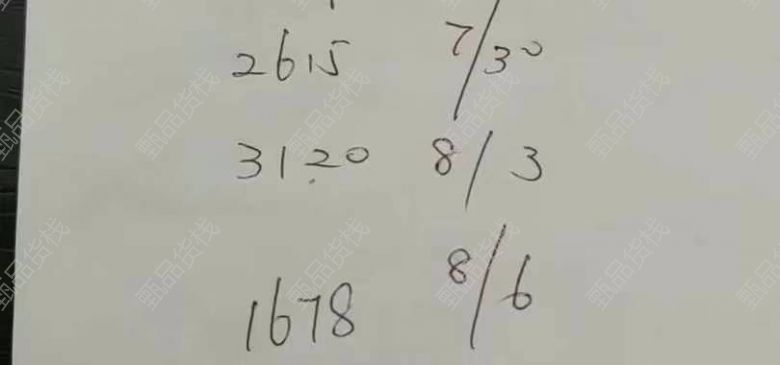 2615 7/30
3120 8/3
1678 8/6
甄品货栈